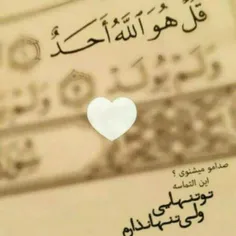 قُلْ هُوَ ٱللَّهُ أَحَدٌ
وَلَمْ يُولَدْ ۝ وَلَمْ
صدامو میشنوی ؟
این التماسه
تو تنهایی
ولی تنهانذارم